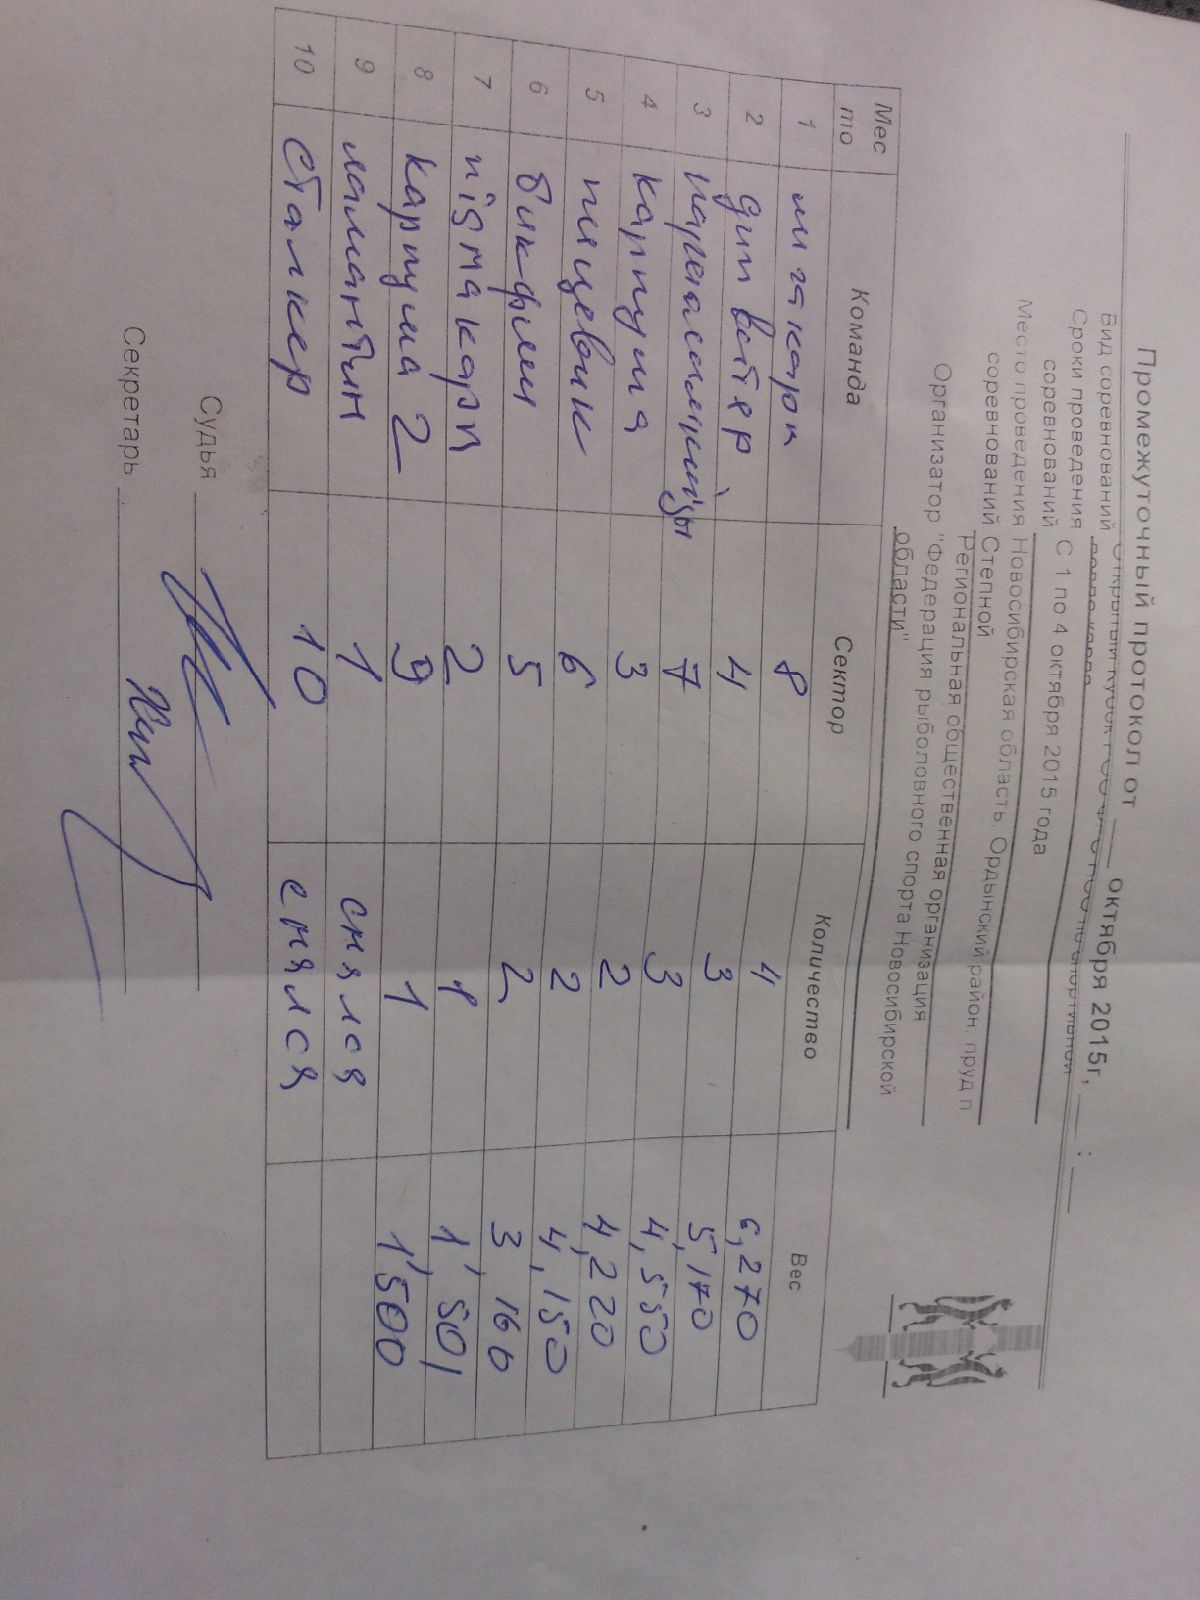 Промежуточный протокол от ___ октября 2015г, ___ : ___
Вид соревнований Открытый Кубок РОО ФРС НСО по спортивной
ловле карпа
Сроки проведения
соревнований С 1 по 4 октября 2015 года
Место проведения Новосибирская область, Ордынский район, пруд п.
соревнований Степной
Региональная общественная организация
Организатор "Федерация рыболовного спорта Новосибирской
области"
Место Команда Сектор Количество Вес
1 мигакарп 8 4 6,270
2 дипватер 4 3 5,170
3 7 3 4,550
4 карпуша 3 2 4,220
5 пищевик 6 2 4,150
6 бикфиш 5 2 3 160
7 2 1 1,501
8 карпуша 2 9 1 1,500
9 ламантин 1 снялся
10 сталкер 10 снялся
Судья
Секретарь